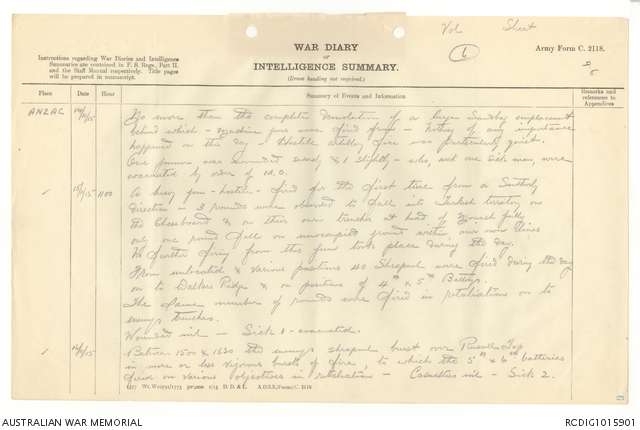 Vol Sheet
6
Army Form C. 2118.
WAR DIARY
or
INTELLIGENCE SUMMARY.
(Erase heading not required.)
Instructions regarding War Diaries and Intelligence
Summaries are contained in F. S. Regs., Part II.
and the Staff Manual respectively. Title pages
will be prepared in manuscript.
Place
Date
Hour
Summary of Events and Information
Remarks and
references to
Appendices
ANZAC
more than the complete demolition of a large sandbag emplacement
behind which - machine guns were fired from - nothing of any importance
happened on this day - Hostile artillery fire was particularly quiet.
One gunner was wounded & 1 slightly - who, with one sick man, were
evacuated by order of M.O.
1100
A heavy gun - hostile - fired for the first time from a Southerly
direction - 3 rounds were observed to fall into Turkish territory on
the Chessboard & on their own trenches at head of Monash gully
only one round fell on unoccupied ground within our own lines
No further firing from this gun took place during the day.
From unlocated & various positions 40 Shrapnel were fired during the day
on to Walkers Ridge & on positions of 4th & 5th Battery.
The same number of rounds were fired in retaliation on to
enemys trenches.
Wounded nil - Sick 1 - evacuated.
Between 1500 & 1630 the enemys shrapnel burst over Russells Top
in more or less vigorous bursts of fire, to which the 5th & 6th batteries
fired on various objectives in retaliation - Casualties nil - Sick 2.
AUSTRALIAN WAR MEMORIAL
RCDIG1015901